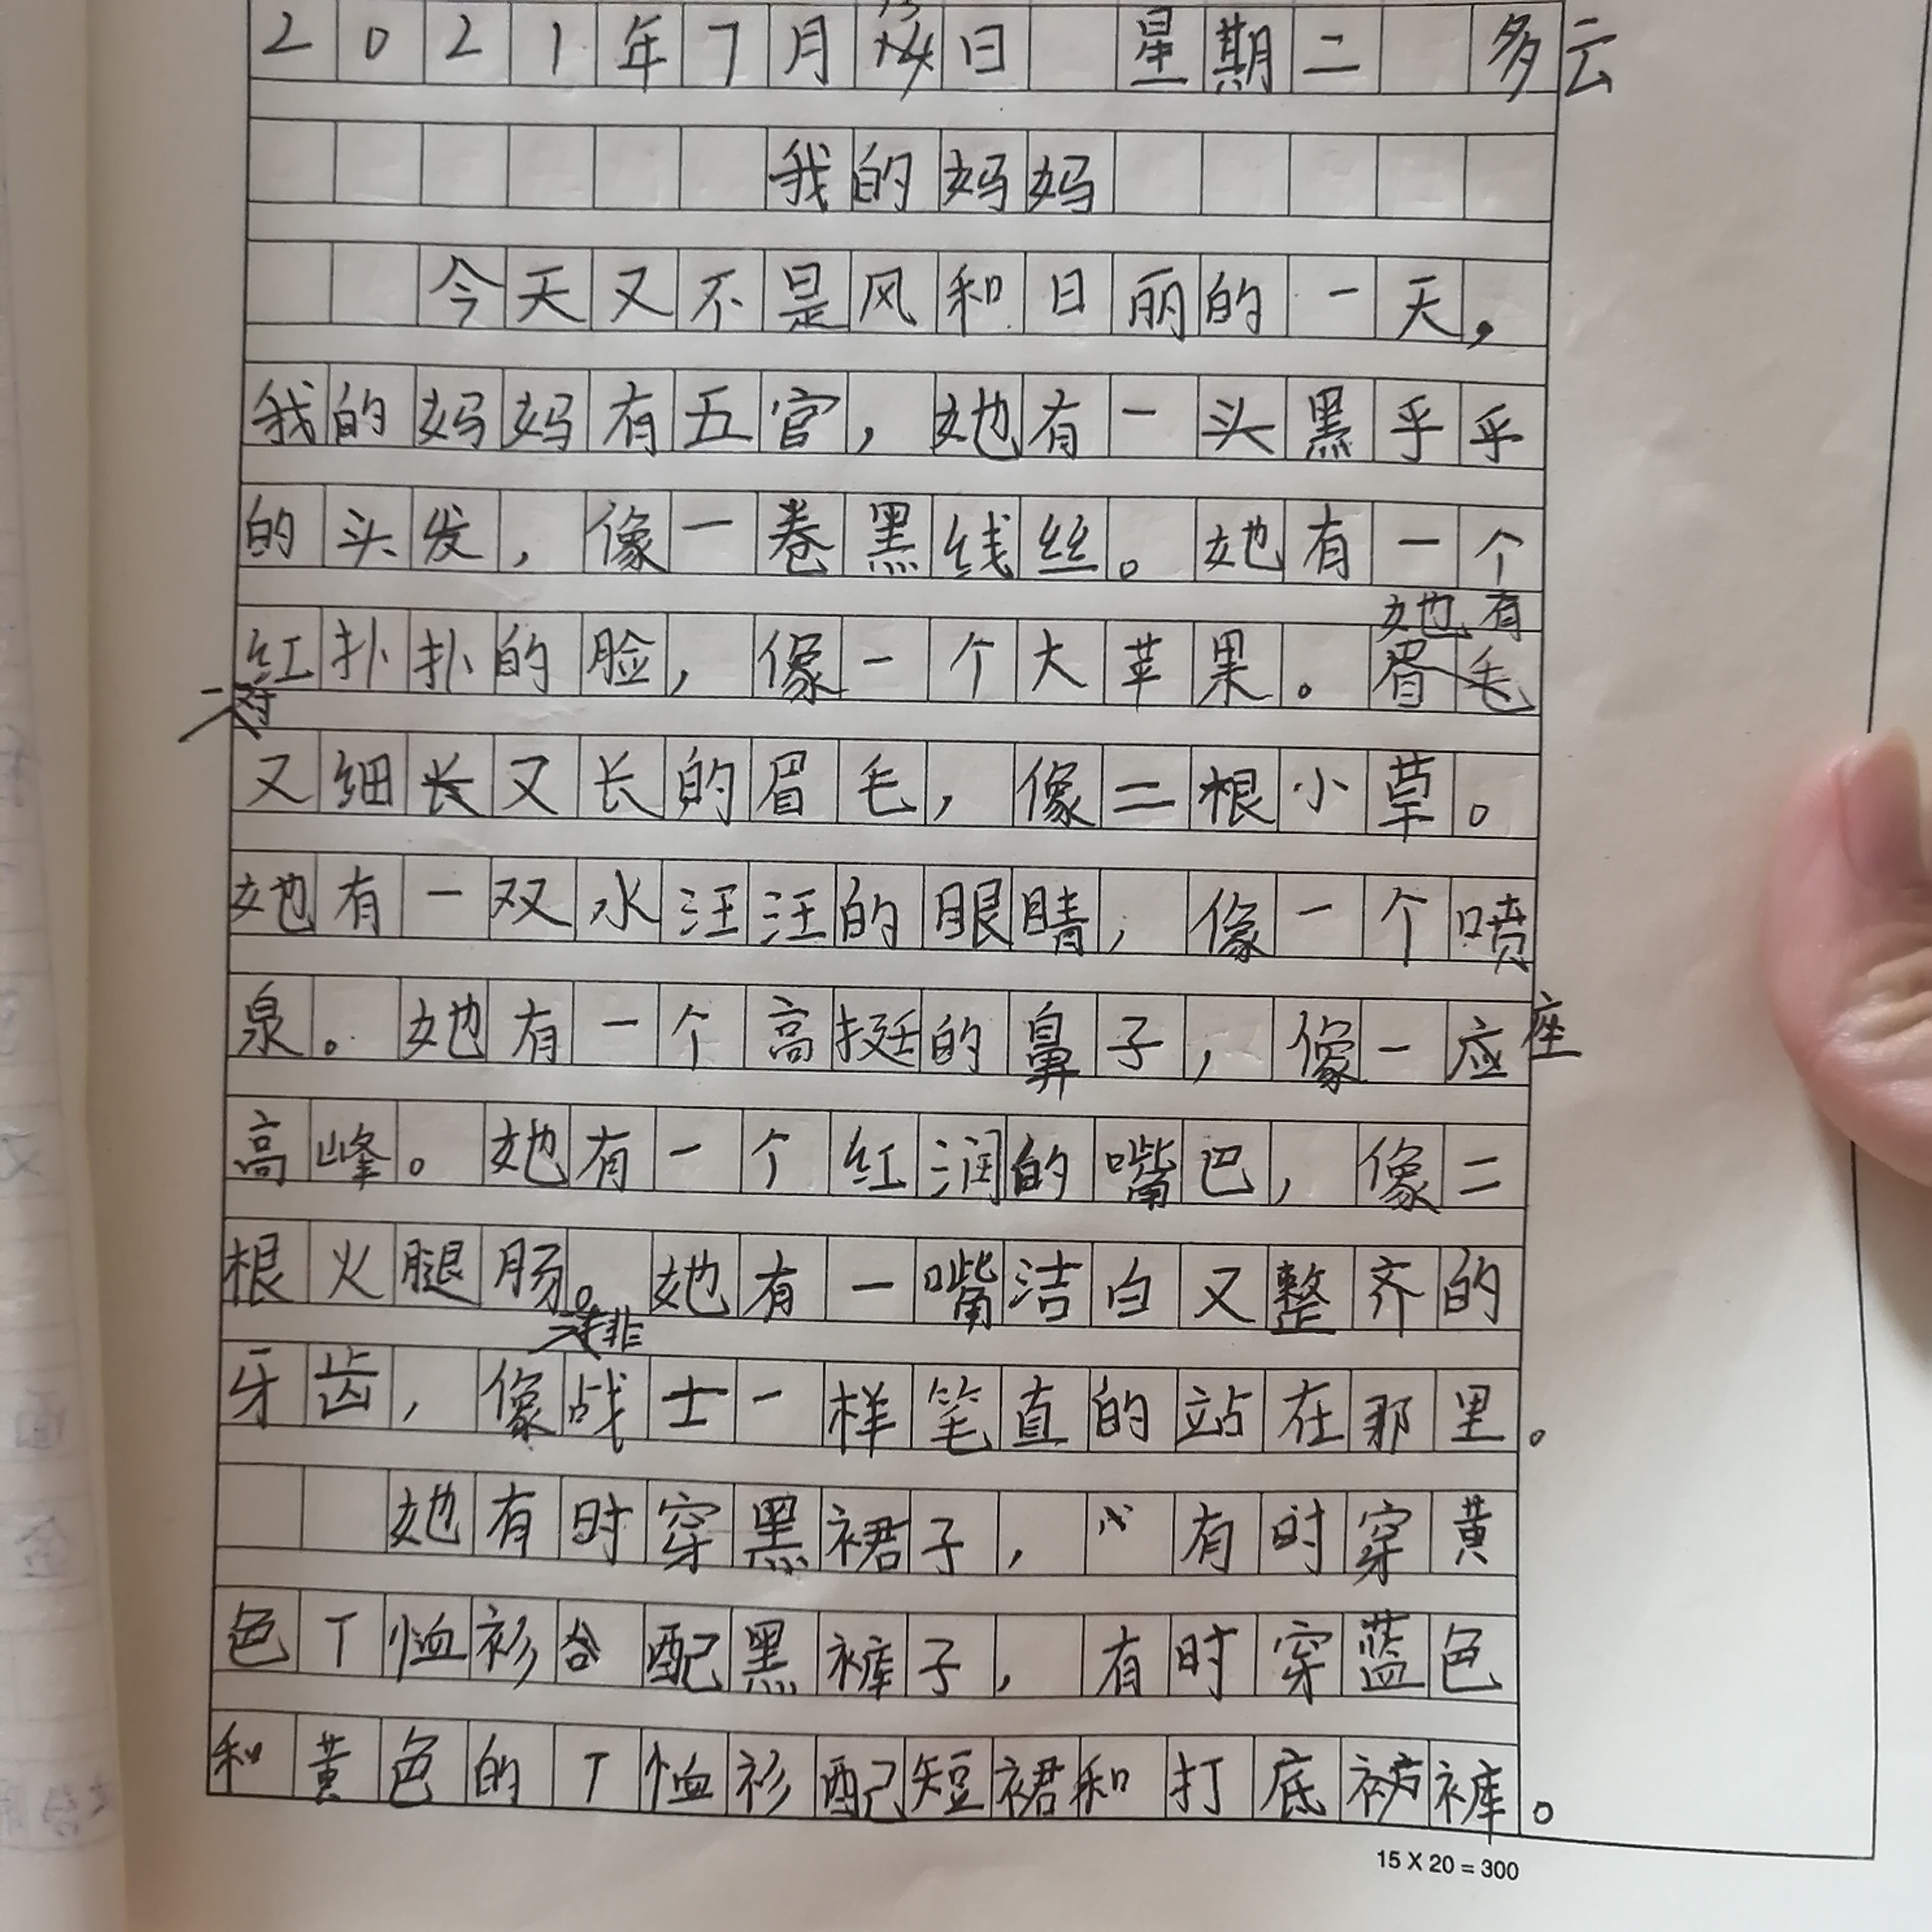 2021年7月13日 星期二 多云
我的妈妈
今天又不是风和日丽的一天，
我的妈妈有五官，她有一头黑乎乎
的头发，像一卷黑线丝。她有一个
红扑扑的脸，像一个大苹果。她有
一对
又细又长的眉毛，像二根小草。
她有一双水汪汪的眼睛，像一个喷
泉。她有一个高挺的鼻子，像一座
高峰。她有一个红润的嘴巴，像二
根火腿肠。她有一嘴洁白又整齐的
一排
牙齿，像战士一样笔直的站在那里。
她有时穿黑裙子，有时穿黄
色T恤衫配黑裤子，有时穿蓝色
和黄色的T恤衫配短裙和打底裤。
15 X 20 = 300